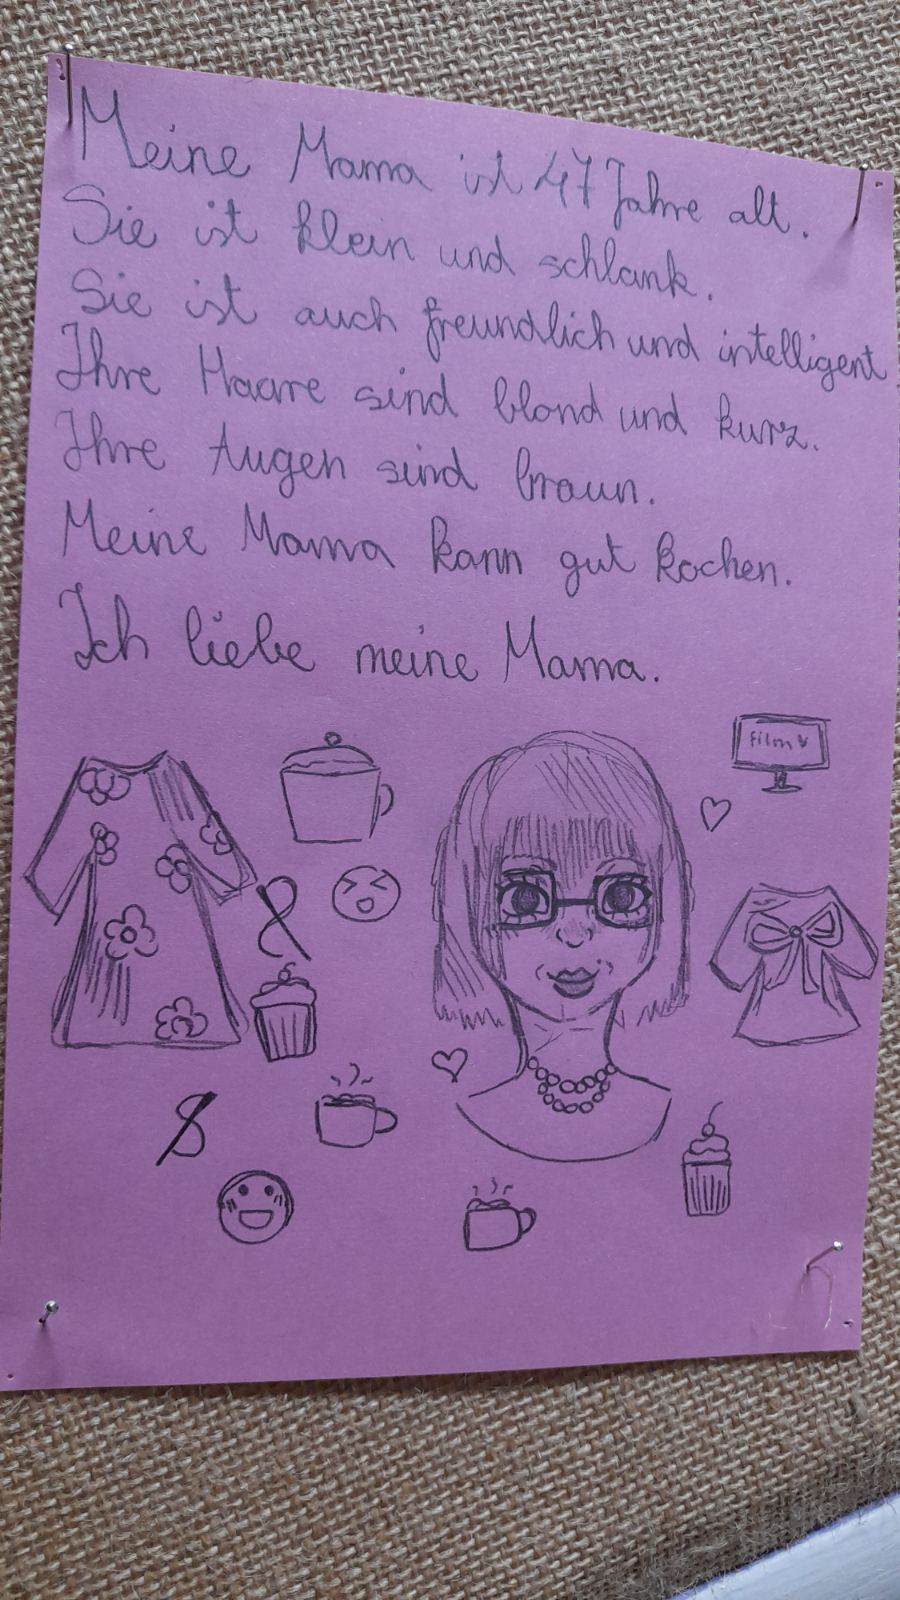 Meine Mama ist 47 Jahre alt.
Sie ist klein und schlank.
Sie ist auch freundlich und intelligent.
Ihre Haare sind blond und kurz.
Ihre Augen sind braun.
Meine Mama kann gut kochen.
Ich liebe meine Mama.
Film